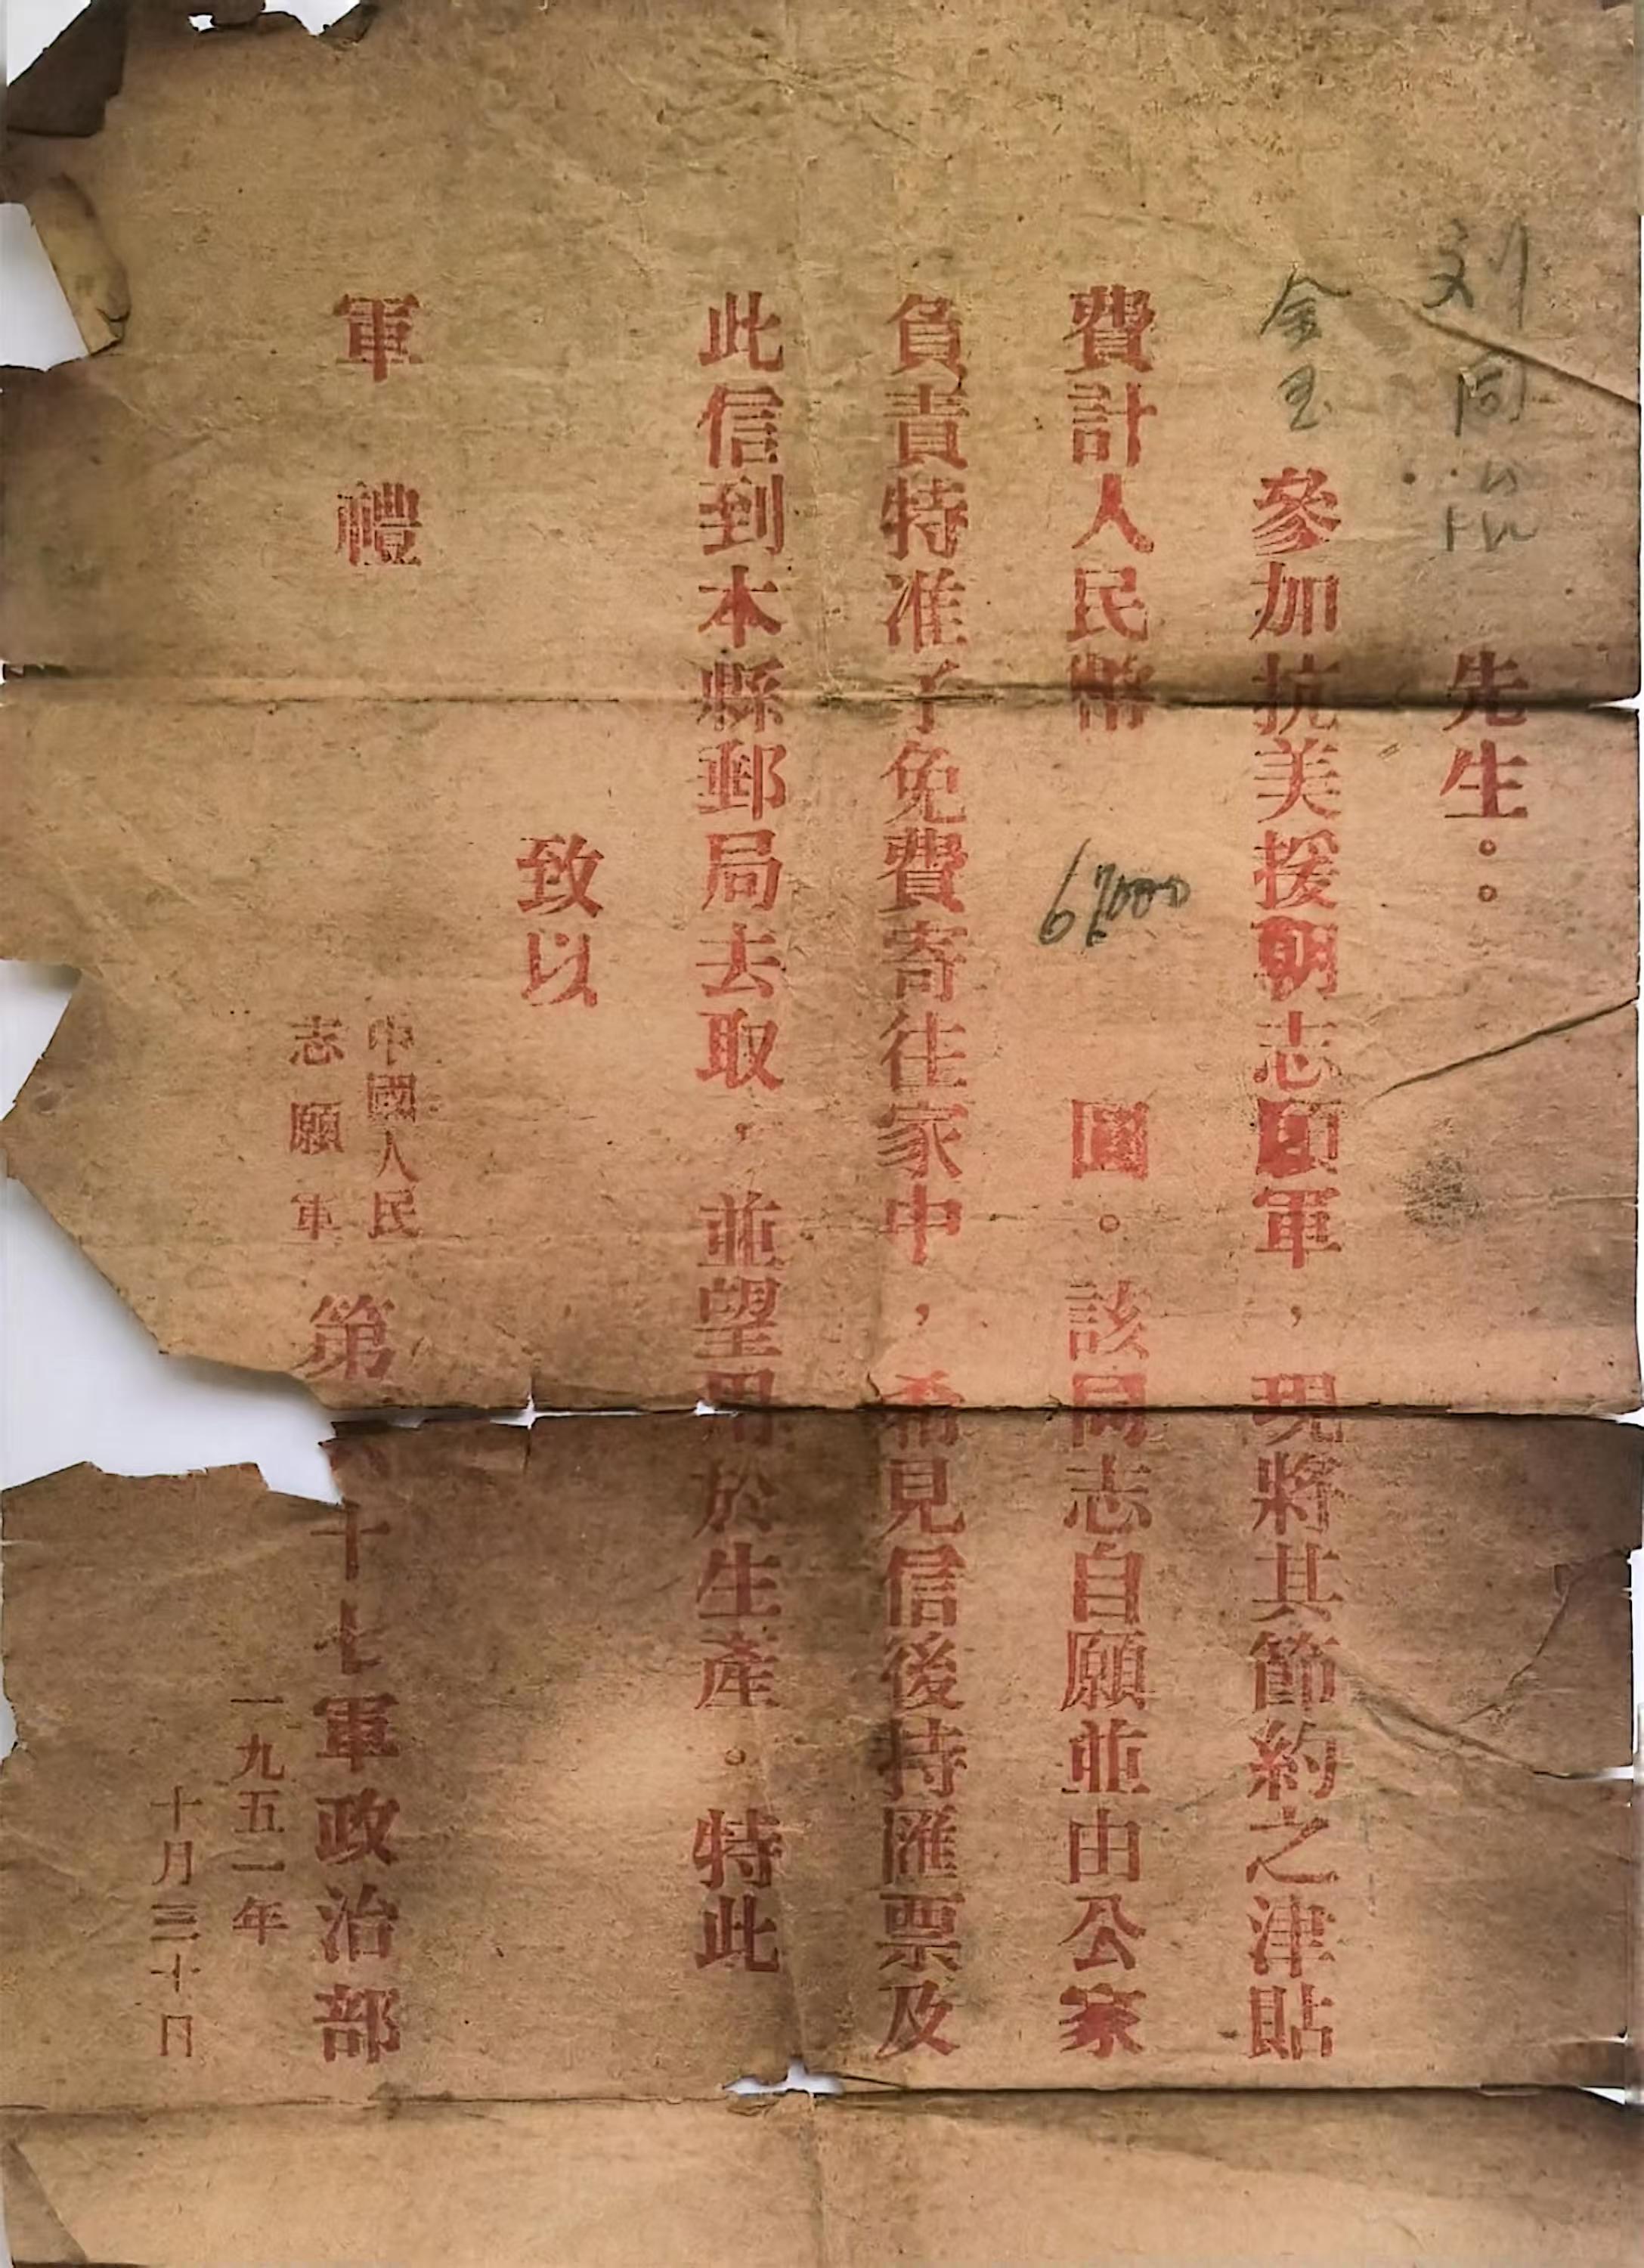 刘同 先生。。
金玉 參加抗美援朝志願軍，現將其節約之津貼
費計人民幣 67000 圓。該同志自願並由公家
負責特准予免費寄往家中，希見信後持匯票及
此信到本縣郵局去取，並望用於生產。特此
致以
軍禮
中國人民
志願軍
第 十七軍政治部
一九五一年
十月三十日